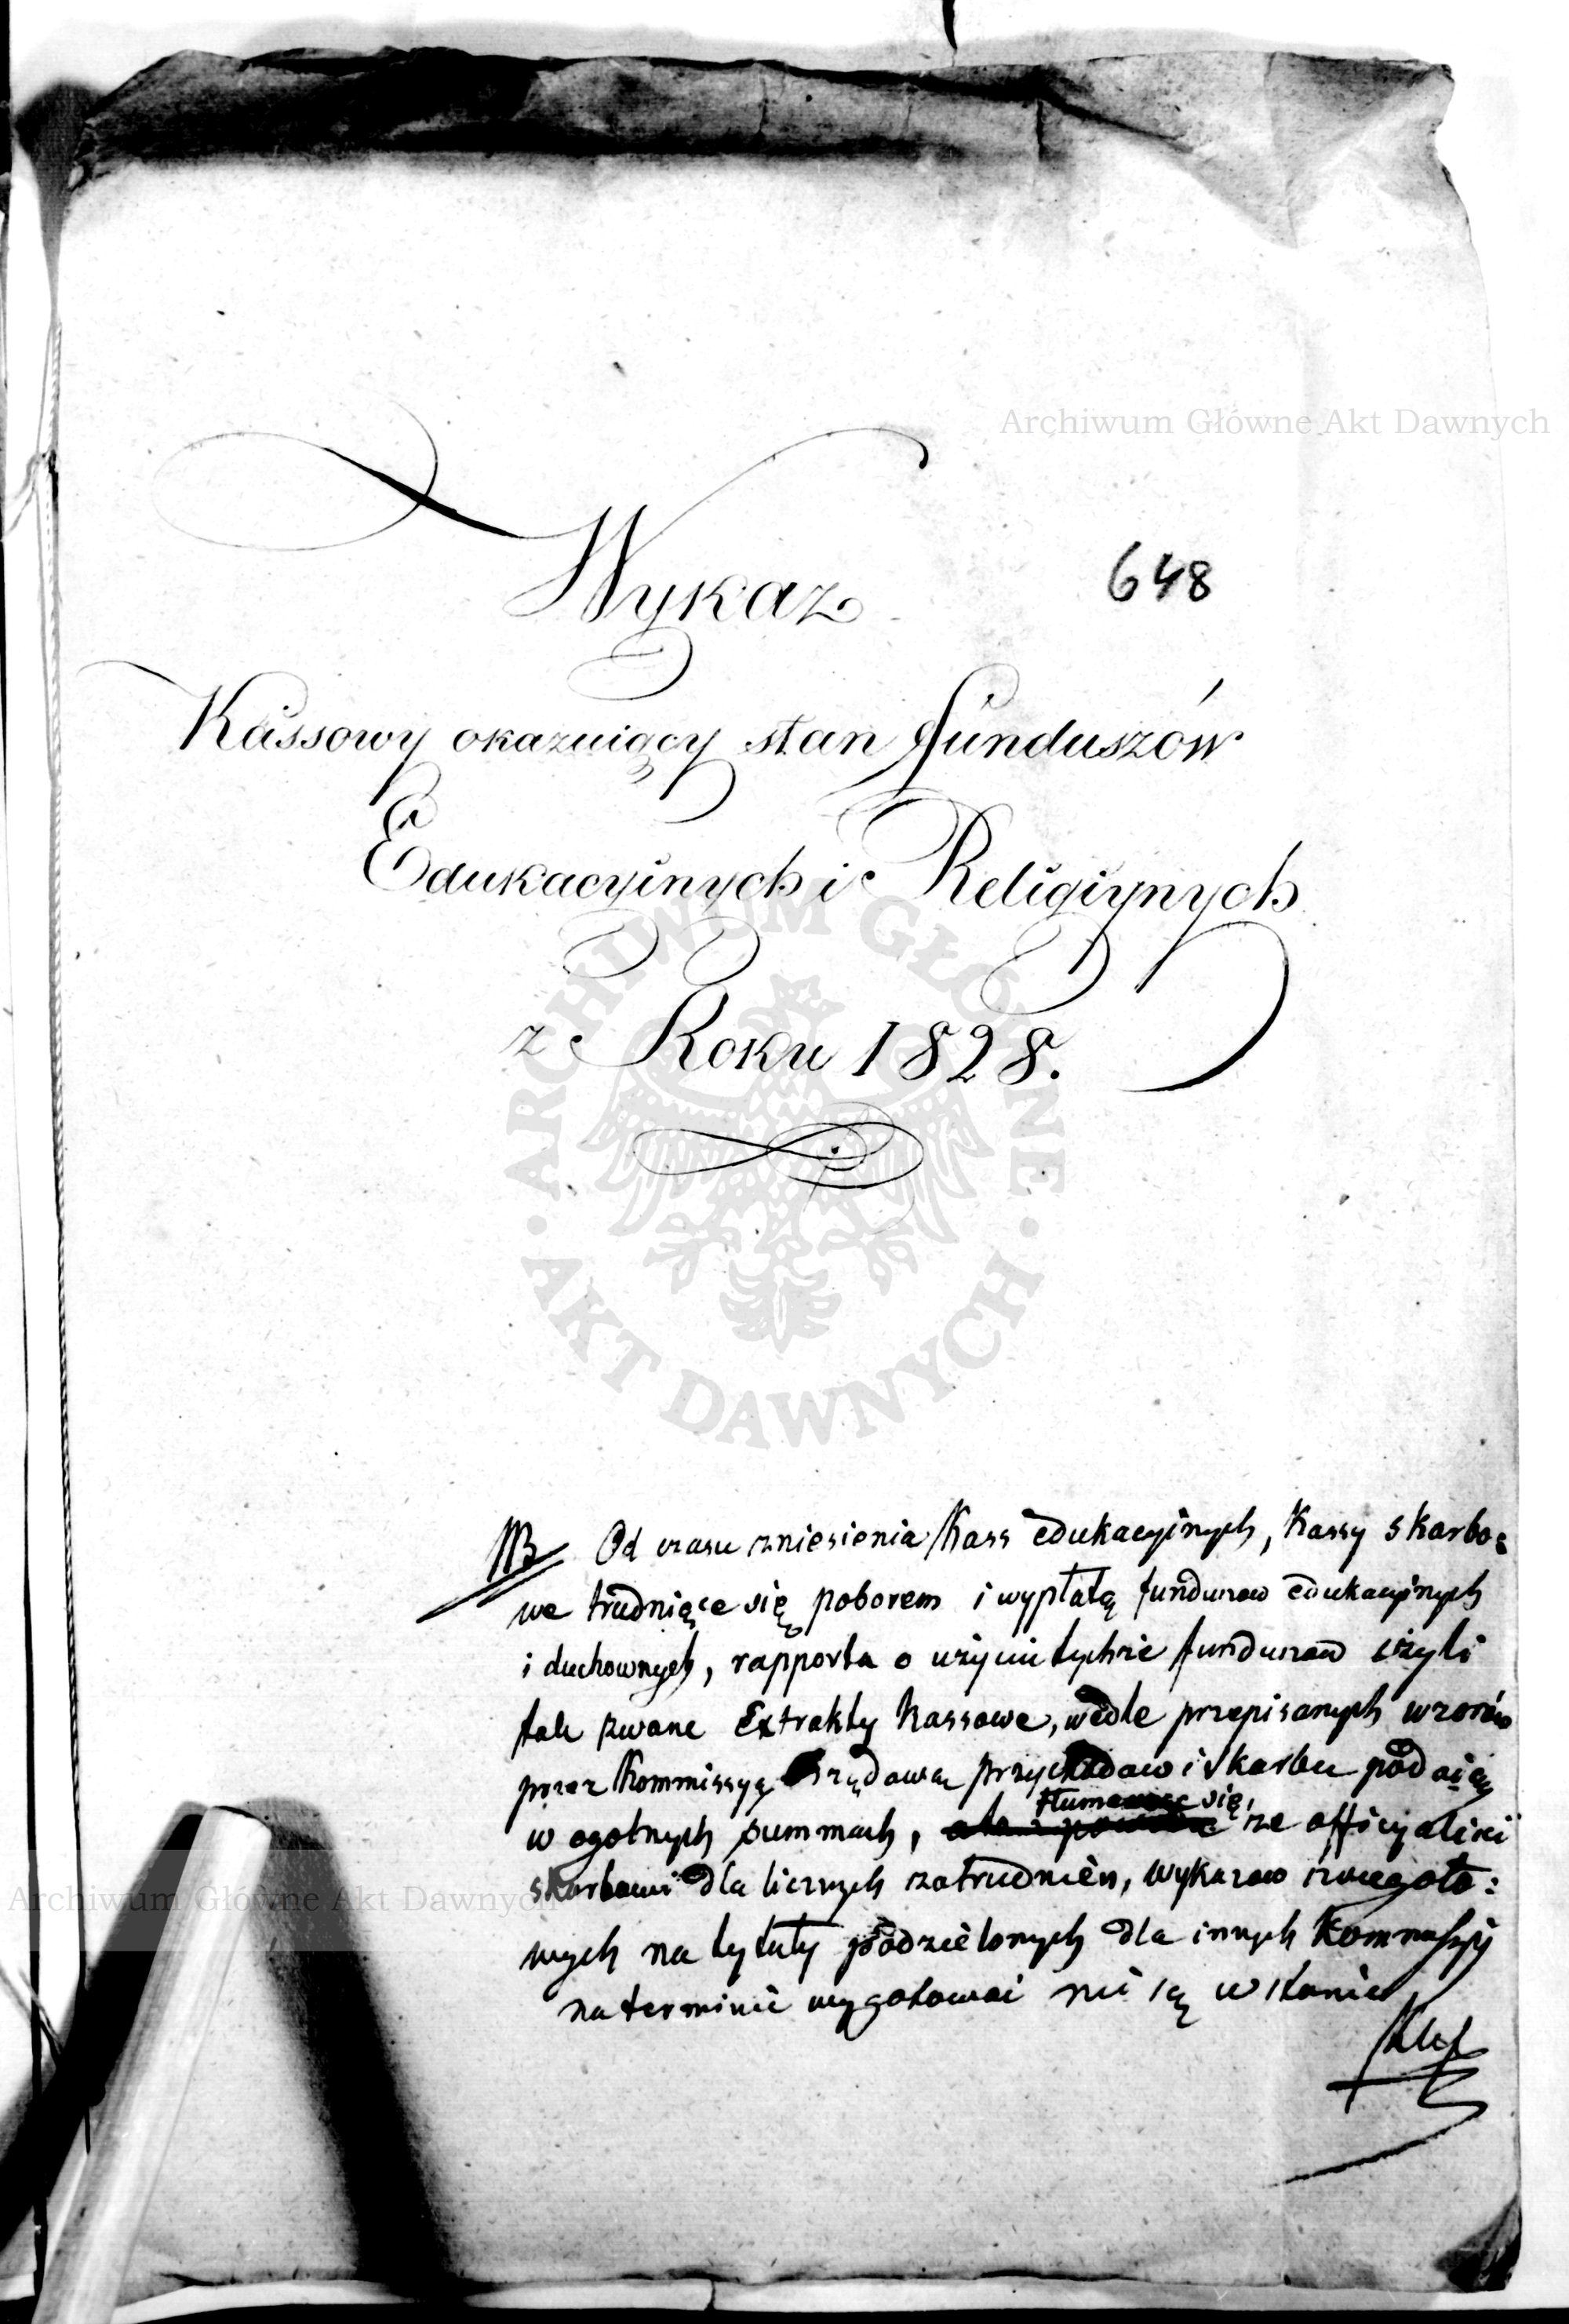 Archiwum Główne Akt Dawnych
Wykaz
648
Kassowy okazuiący stan funduszów
Edukacyinych i Religiynych
z Roku 1828.
ARCHIWUM GŁÓWNE
AKT DAWNYCH
NB Od czasu zniesienia Kass edukacyinych, Kassy skarbo:
we trudniące się poborem i wypłatą funduszow edukacyinych
i duchownych, rapporta o użyciu tychże funduszow czyli
tak zwane Extrakty Kassowe, wedle przepisanych wzorów
przez Kommissyą Rządową przychodow i skarbu podaią
w ogolnych summach, tłumacząc się, ze officyaliści
skarbowi dla licznych zatrudnień, wykazow szczegoło:
wych na tytuły podzielonych dla innych Kommissyi
na terminie wygotować nie są w stanie
Archiwum Główne Akt Dawnych